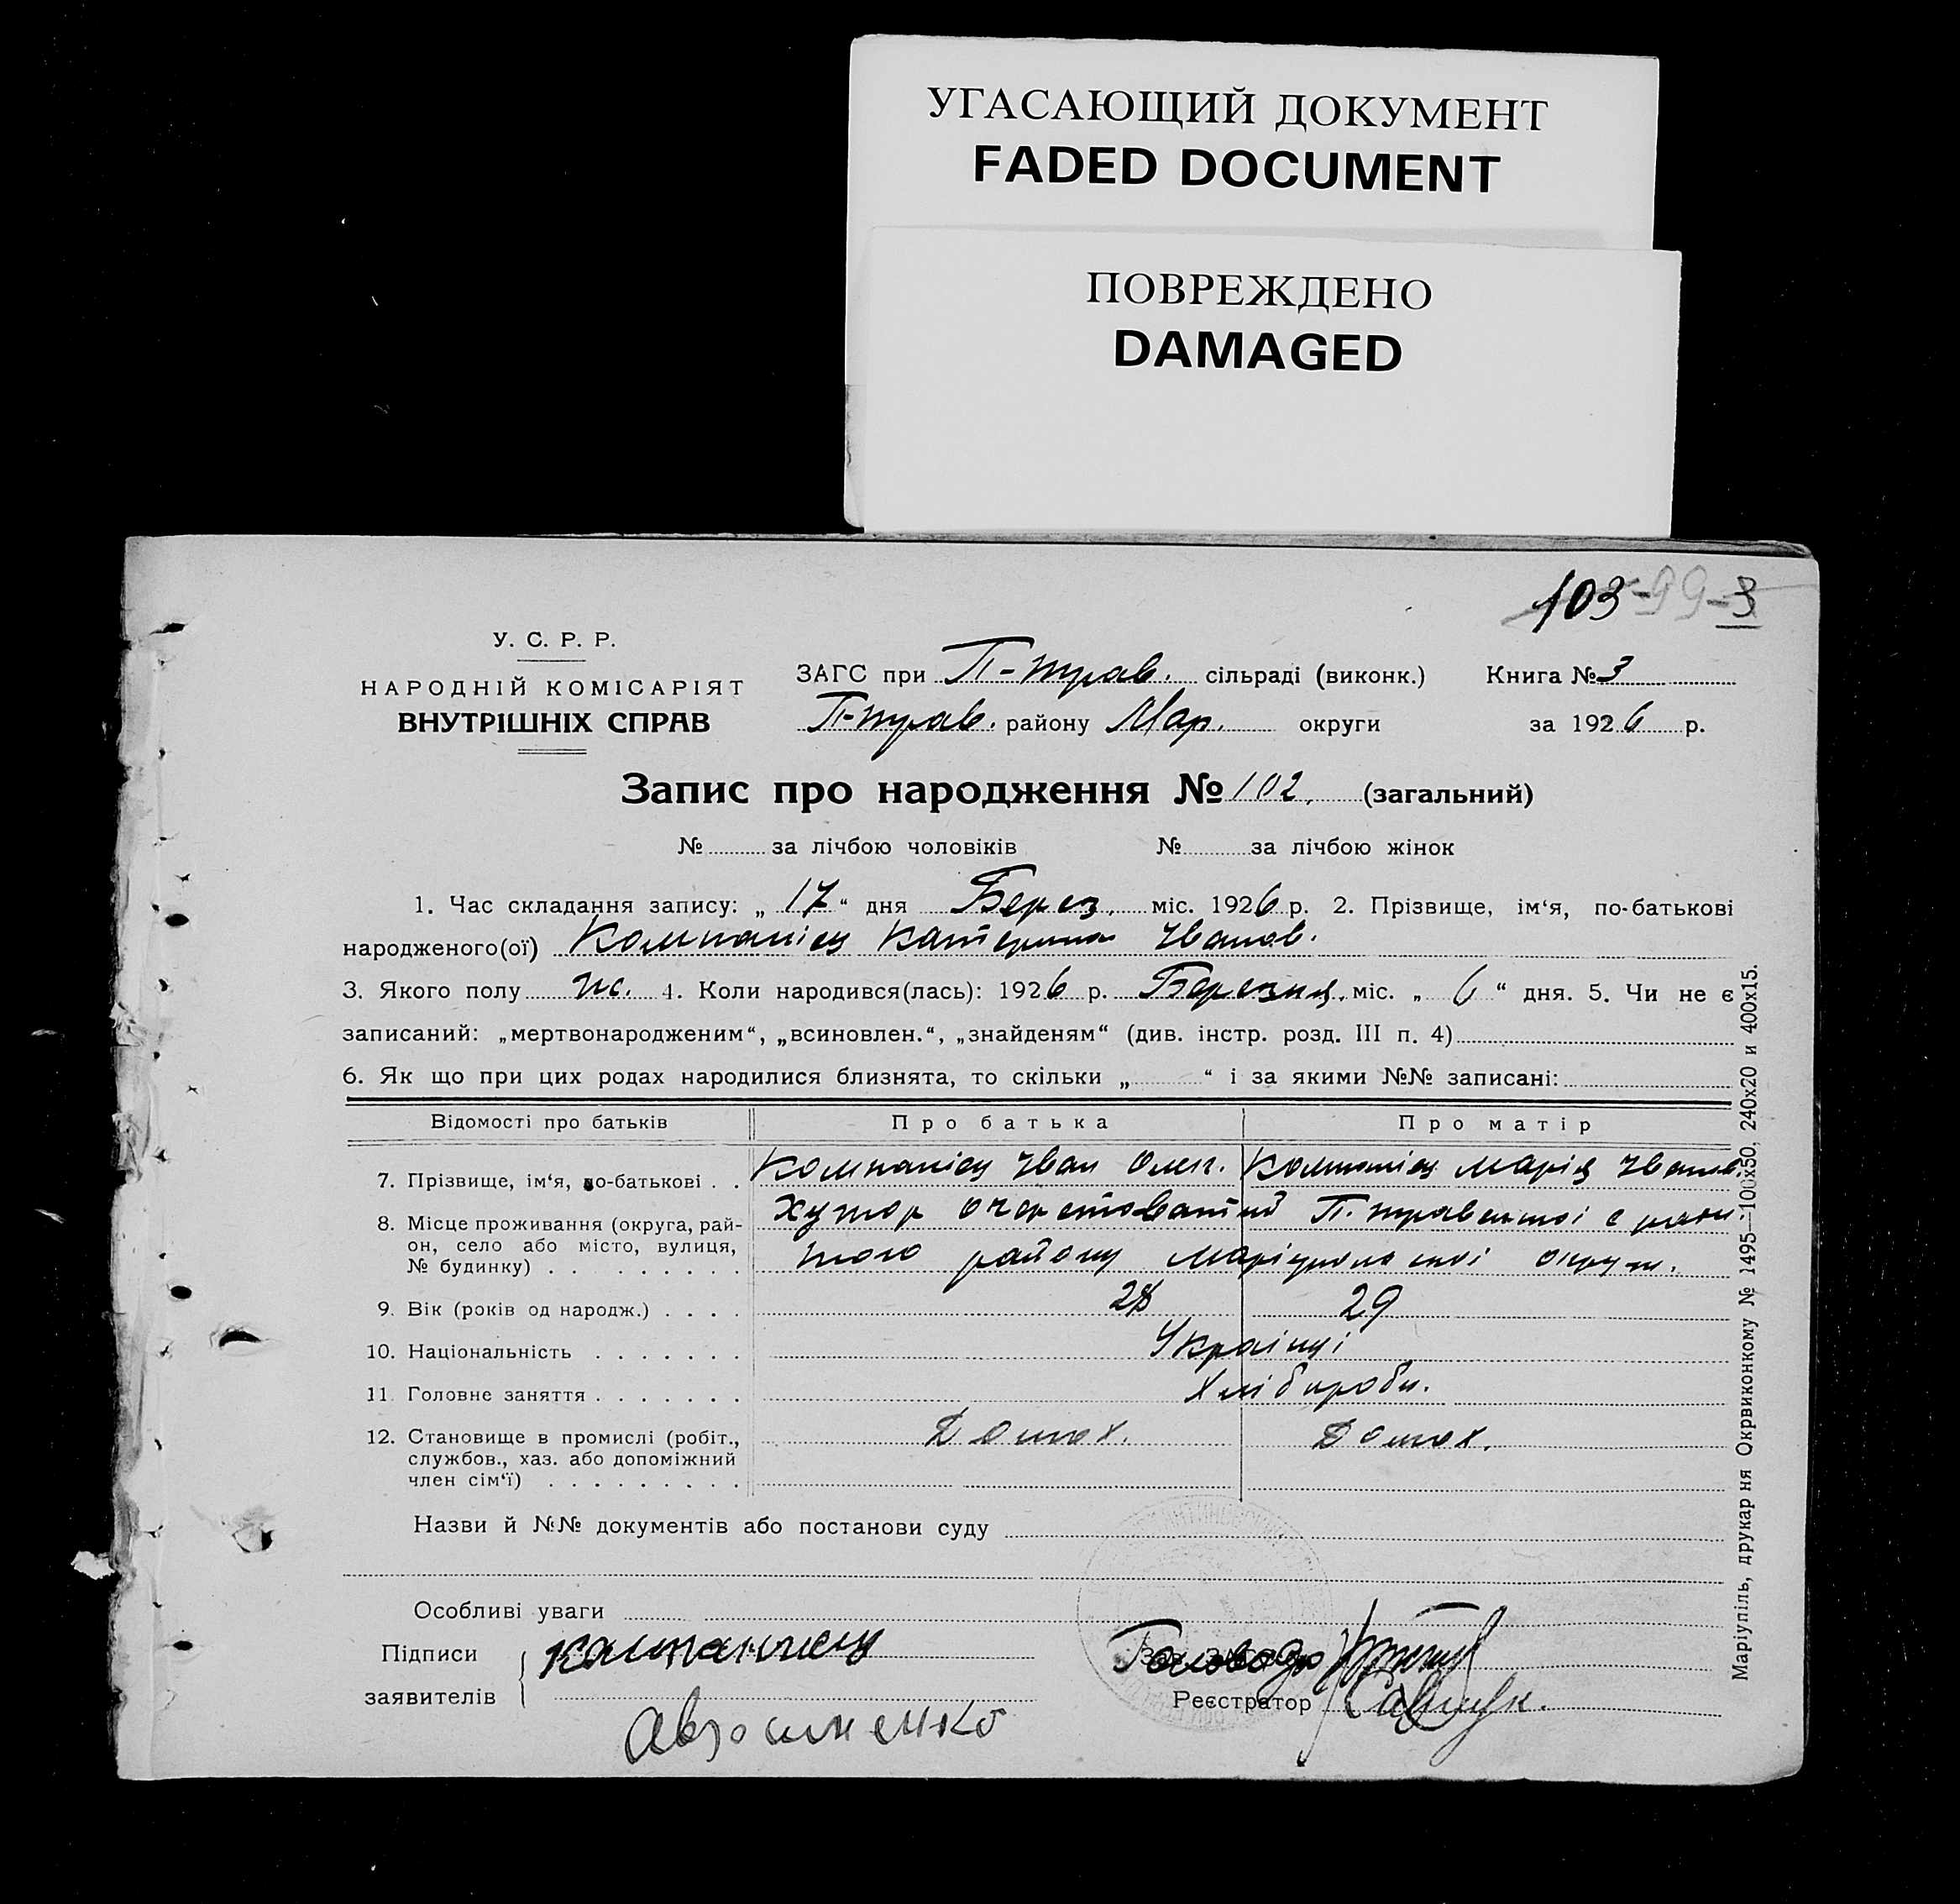 УГАСАЮЩИЙ ДОКУМЕНТ
FADED DOCUMENT
ПОВРЕЖДЕНО
DAMAGED
103-99-3
У. С. Р. Р.
НАРОДНІЙ КОМІСАРІЯТ
ВНУТРІШНІХ СПРАВ
ЗАГС при П-трав. сільраді (виконк.) Книга № 3
П-трав. району Мар. округи за 1926 р.
Запис про народження № 102. (загальний)
№ за лічбою чоловіків № за лічбою жінок
1. Час складання запису: „ 17 “ дня Берез. міс. 1926 р. 2. Прізвище, ім‘я, по-батькові
народженого(ої) Компаніец Катерина Іванов.
3. Якого полу ж. 4. Коли народився(лась): 1926 р. Березня міс. „ 6 “ дня. 5. Чи не є
записаний: „мертвонародженим“, „всиновлен.“, „знайденям“ (див. інстр. розд. III п. 4)
6. Як що при цих родах народилися близнята, то скільки „ “ і за якими №№ записані:
Відомості про батьків Про батька Про матір
7. Прізвище, ім‘я, по-батькові . . Компаніец Іван Компаніец Марія Іванов.
8. Місце проживання (округа, рай- Хутор Очеретоватий П-травенської
он, село або місто, вулиця,
№ будинку) . . . . . . . . . того району Маріупольскої округи.
9. Вік (років од народж.) . . . . 28 29
10. Національність . . . . . . . Українці
11. Головне заняття . . . . . . . Хлібороби.
12. Становище в промислі (робіт.,
службов., хаз. або допоміжний
член сім‘ї) . . . . . . . . .
Назви й №№ документів або постанови суду
Особливі уваги
Підписи
заявителів
Компаниец
Голова
Реєстратор
Маріупіль, друкарня Окрвиконкому № 1495—100х50, 240х20 и 400х15.